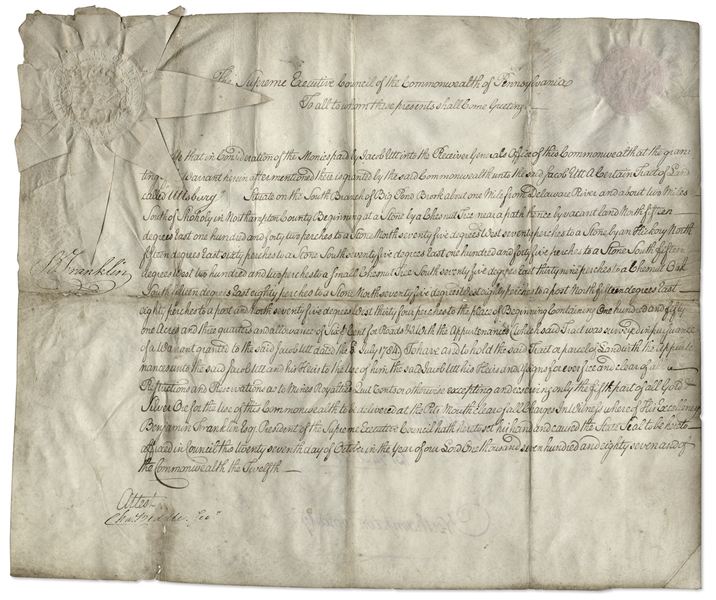 The Supreme Executive Council of the Commonwealth of Pennsylvania
To all to whom these presents shall Come Greeting
that in Consideration of the Monies paid by Jacob Utt into the Receiver Generals Office of this Commonwealth at the gran-
ting Warrant herein after mentioned there is granted by the said Commonwealth unto the said Jacob Utt A Certain Tract of Land
called Uttsbury Situate on the South Branch of Big Pond Brook about one Mile from Delaware River and about two Miles
South of Shoholy in Northampton County Beginning at a Stone by a Chesnut Tree near a path thence by vacant land North fifteen
degrees East one hundred and forty two perches to a Stone North seventy five degrees West seventy perches to a Stone by an Hickory North
fifteen degrees East sixty perches to a Stone South seventy five degrees East one hundred and forty five perches to a Stone South fifteen
degrees West two hundred and two perches to a small Chesnut Tree South seventy five degrees East thirty nine perches to a Chesnut Oak
South fifteen degrees East eighty perches to a Stone North seventy five degrees West eighty perches to a post North fifteen degrees East
eighty perches to a post and North seventy five degrees West thirty four perches to the place of Beginning Containing One hundred and fifty
one Acres and three quarters and allowance of Six P Cent for Roads &c With the Appurtenances (Which said Tract was surveyed in pursuance
of a Warrant granted to the said Jacob Utt dated the July 1784) To have and to hold the said Tract or parcel of Land with the Appurte-
nances unto the said Jacob Utt and his Heirs to the Use of him the said Jacob Utt his Heirs and Assigns forever free and clear of all
Restrictions and Reservations as to Mines Royalties Quit Rents or otherwise excepting and reserving only the fifth part of all Gold &
Silver Ore for the Use of this Commonwealth to be delivered at the Pits Mouth clear of all Charges In Witness whereof His Excellency
Benjamin Franklin Esq President of the Supreme Executive Council hath hereto set his hand and caused the State Seal to be hereto
affixed in Council this twenty seventh day of October in the Year of our Lord One thousand seven hundred and eighty seven and of
the Commonwealth the Twelfth
B Franklin
Attest
Cha Biddle Secy